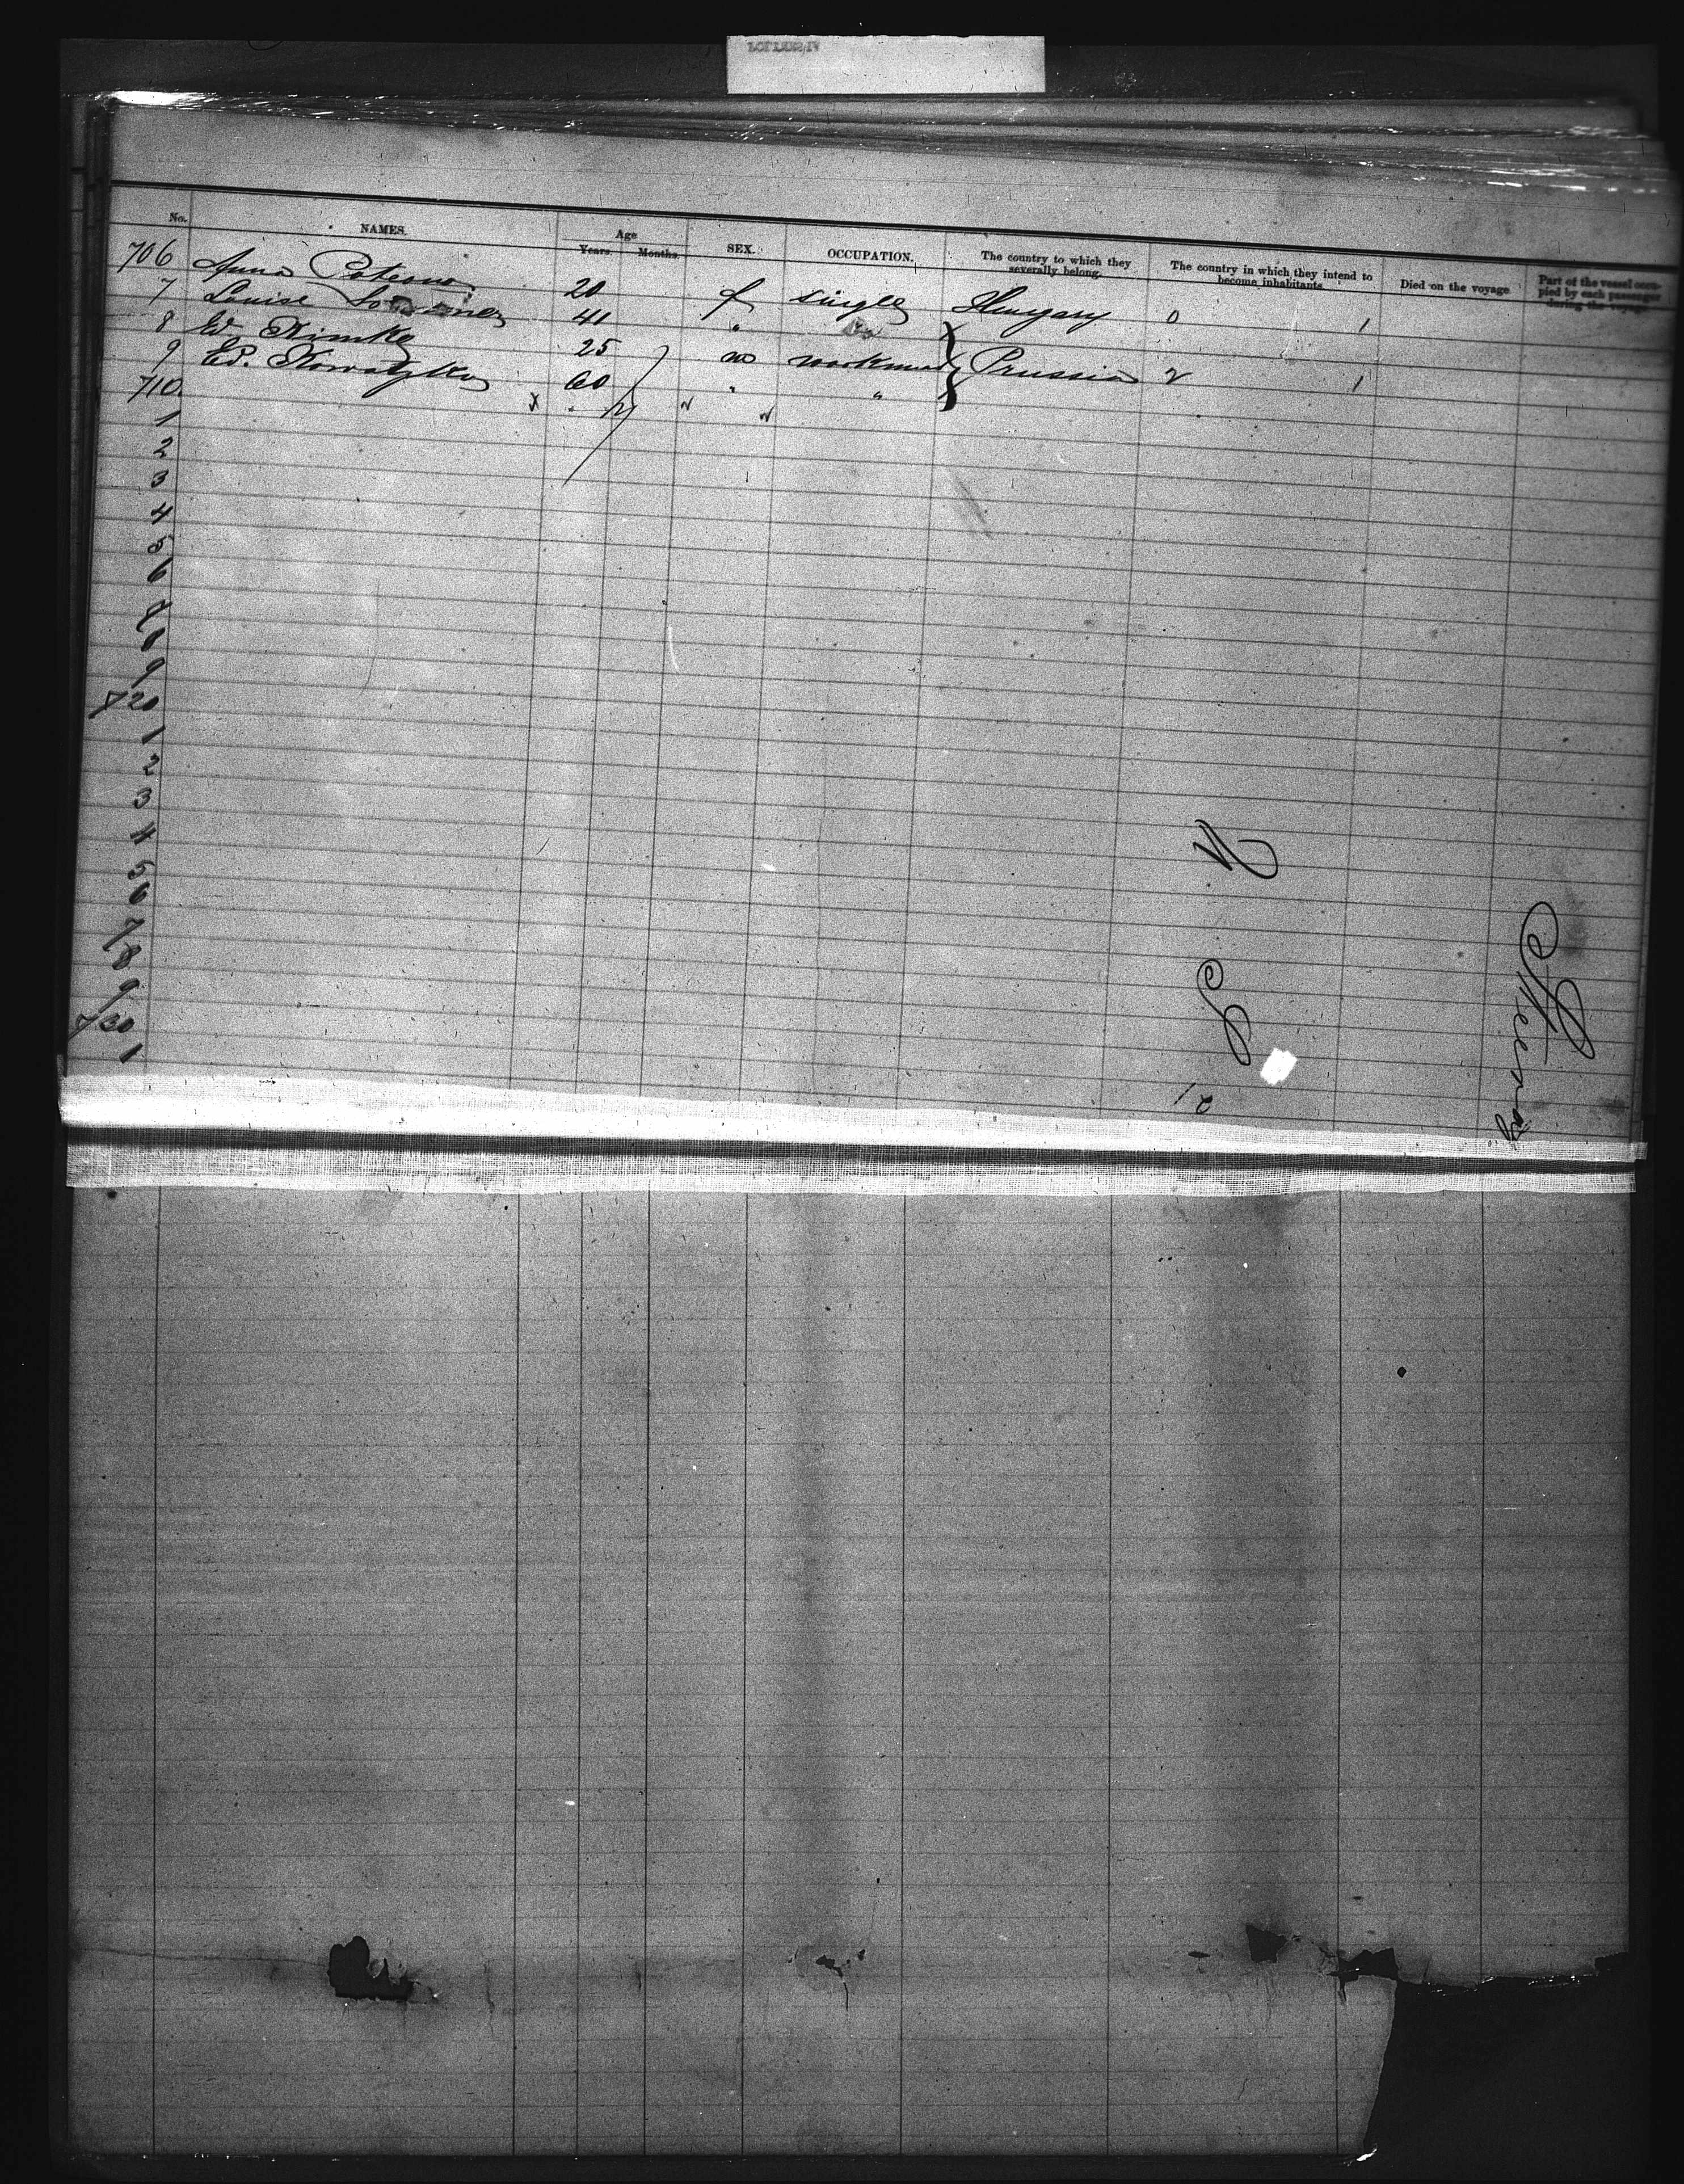 No. NAMES. Age SEX. OCCUPATION. The country to which they severally belong. The country in which they intend to become inhabitants Died on the voyage Part of the vessel occupied by each passenger during the voyage
Years. Months.
706 Anna 20 f single Hungary 0 1
7 Louise 41 "
8 Ed. Kimke 25 m workman Prussia 2 1
9 Ed. Kowatzke 60 " "
710 x "
1
2
3
4
5
6
7
8
9
720
1
2
3
4
5
6
7
8
9
730
1
N. S. 21
Steerag